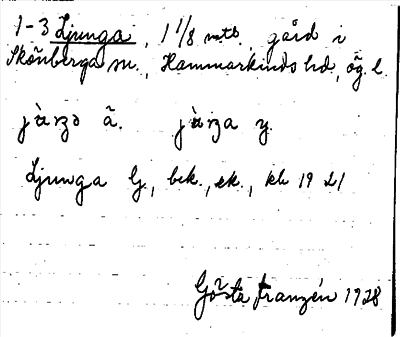 1-3 Ljunga, 1 1/8 mtl, gård i
Skönberga sn., Hammarkinds hd, Ög. l.
jùŋɜ ä. jùŋa y.
Ljunga G., bek., ek., kb 1921
Gösta Franzén 1928